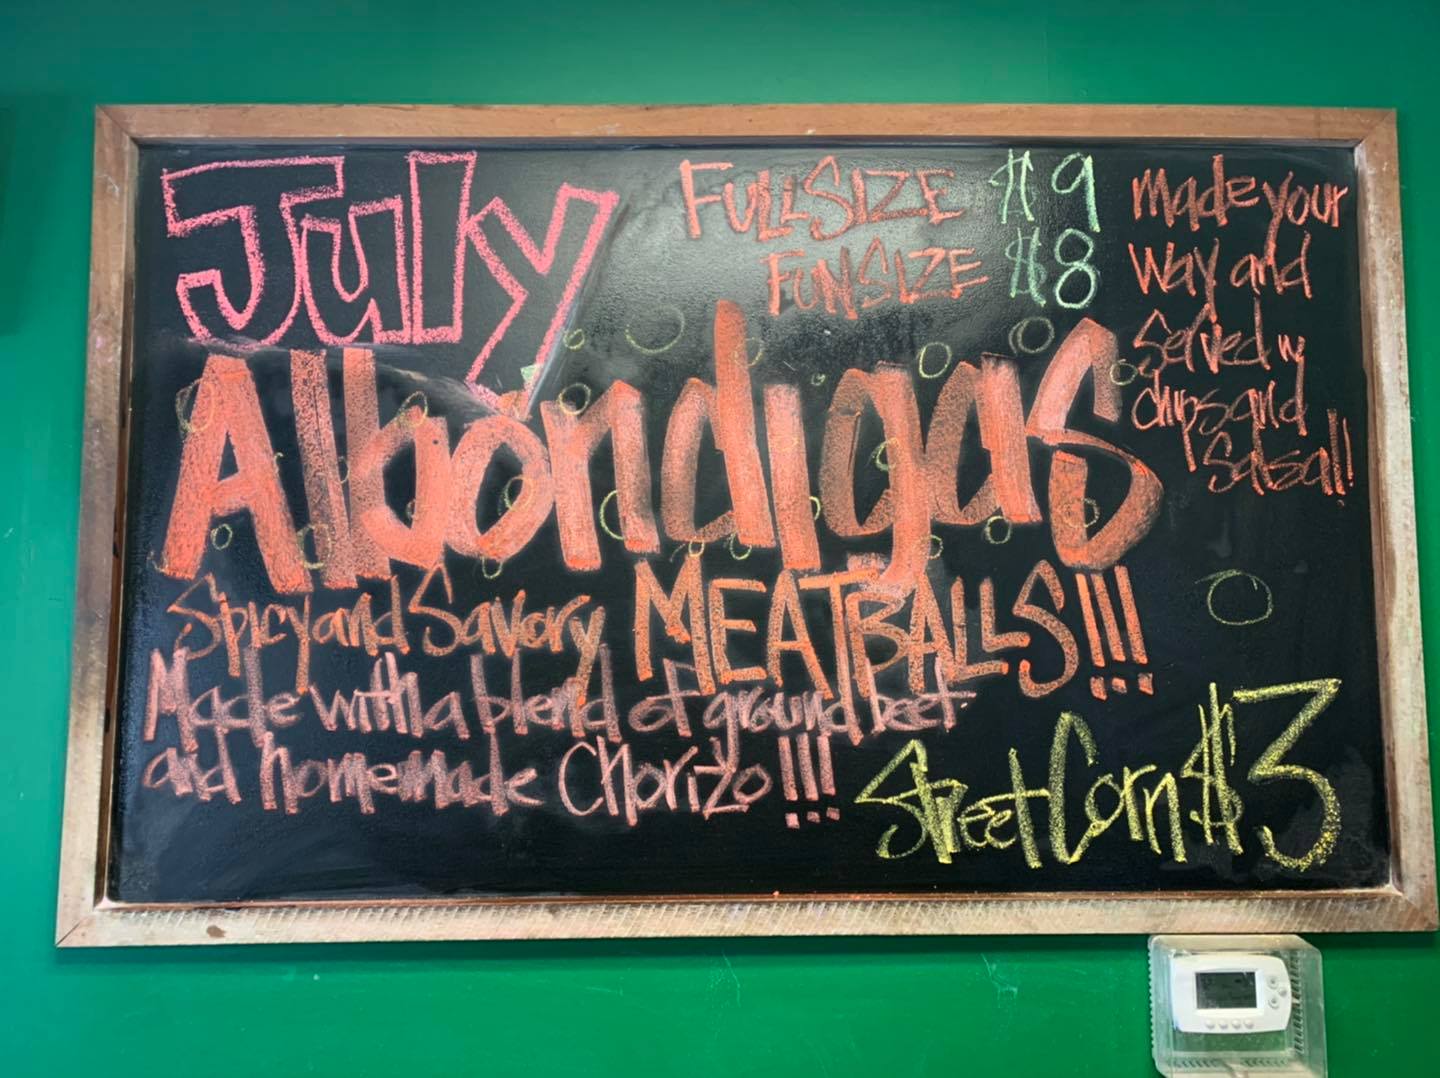 July
FULLSIZE $9
FUNSIZE $8
made your
way and
Served w
chips and
Salsa!!
Albondigas
Spicy and Savory MEATBALLS!!!
Made with a blend of ground beef
and homemade Chorizo!!!
Street Corn $3